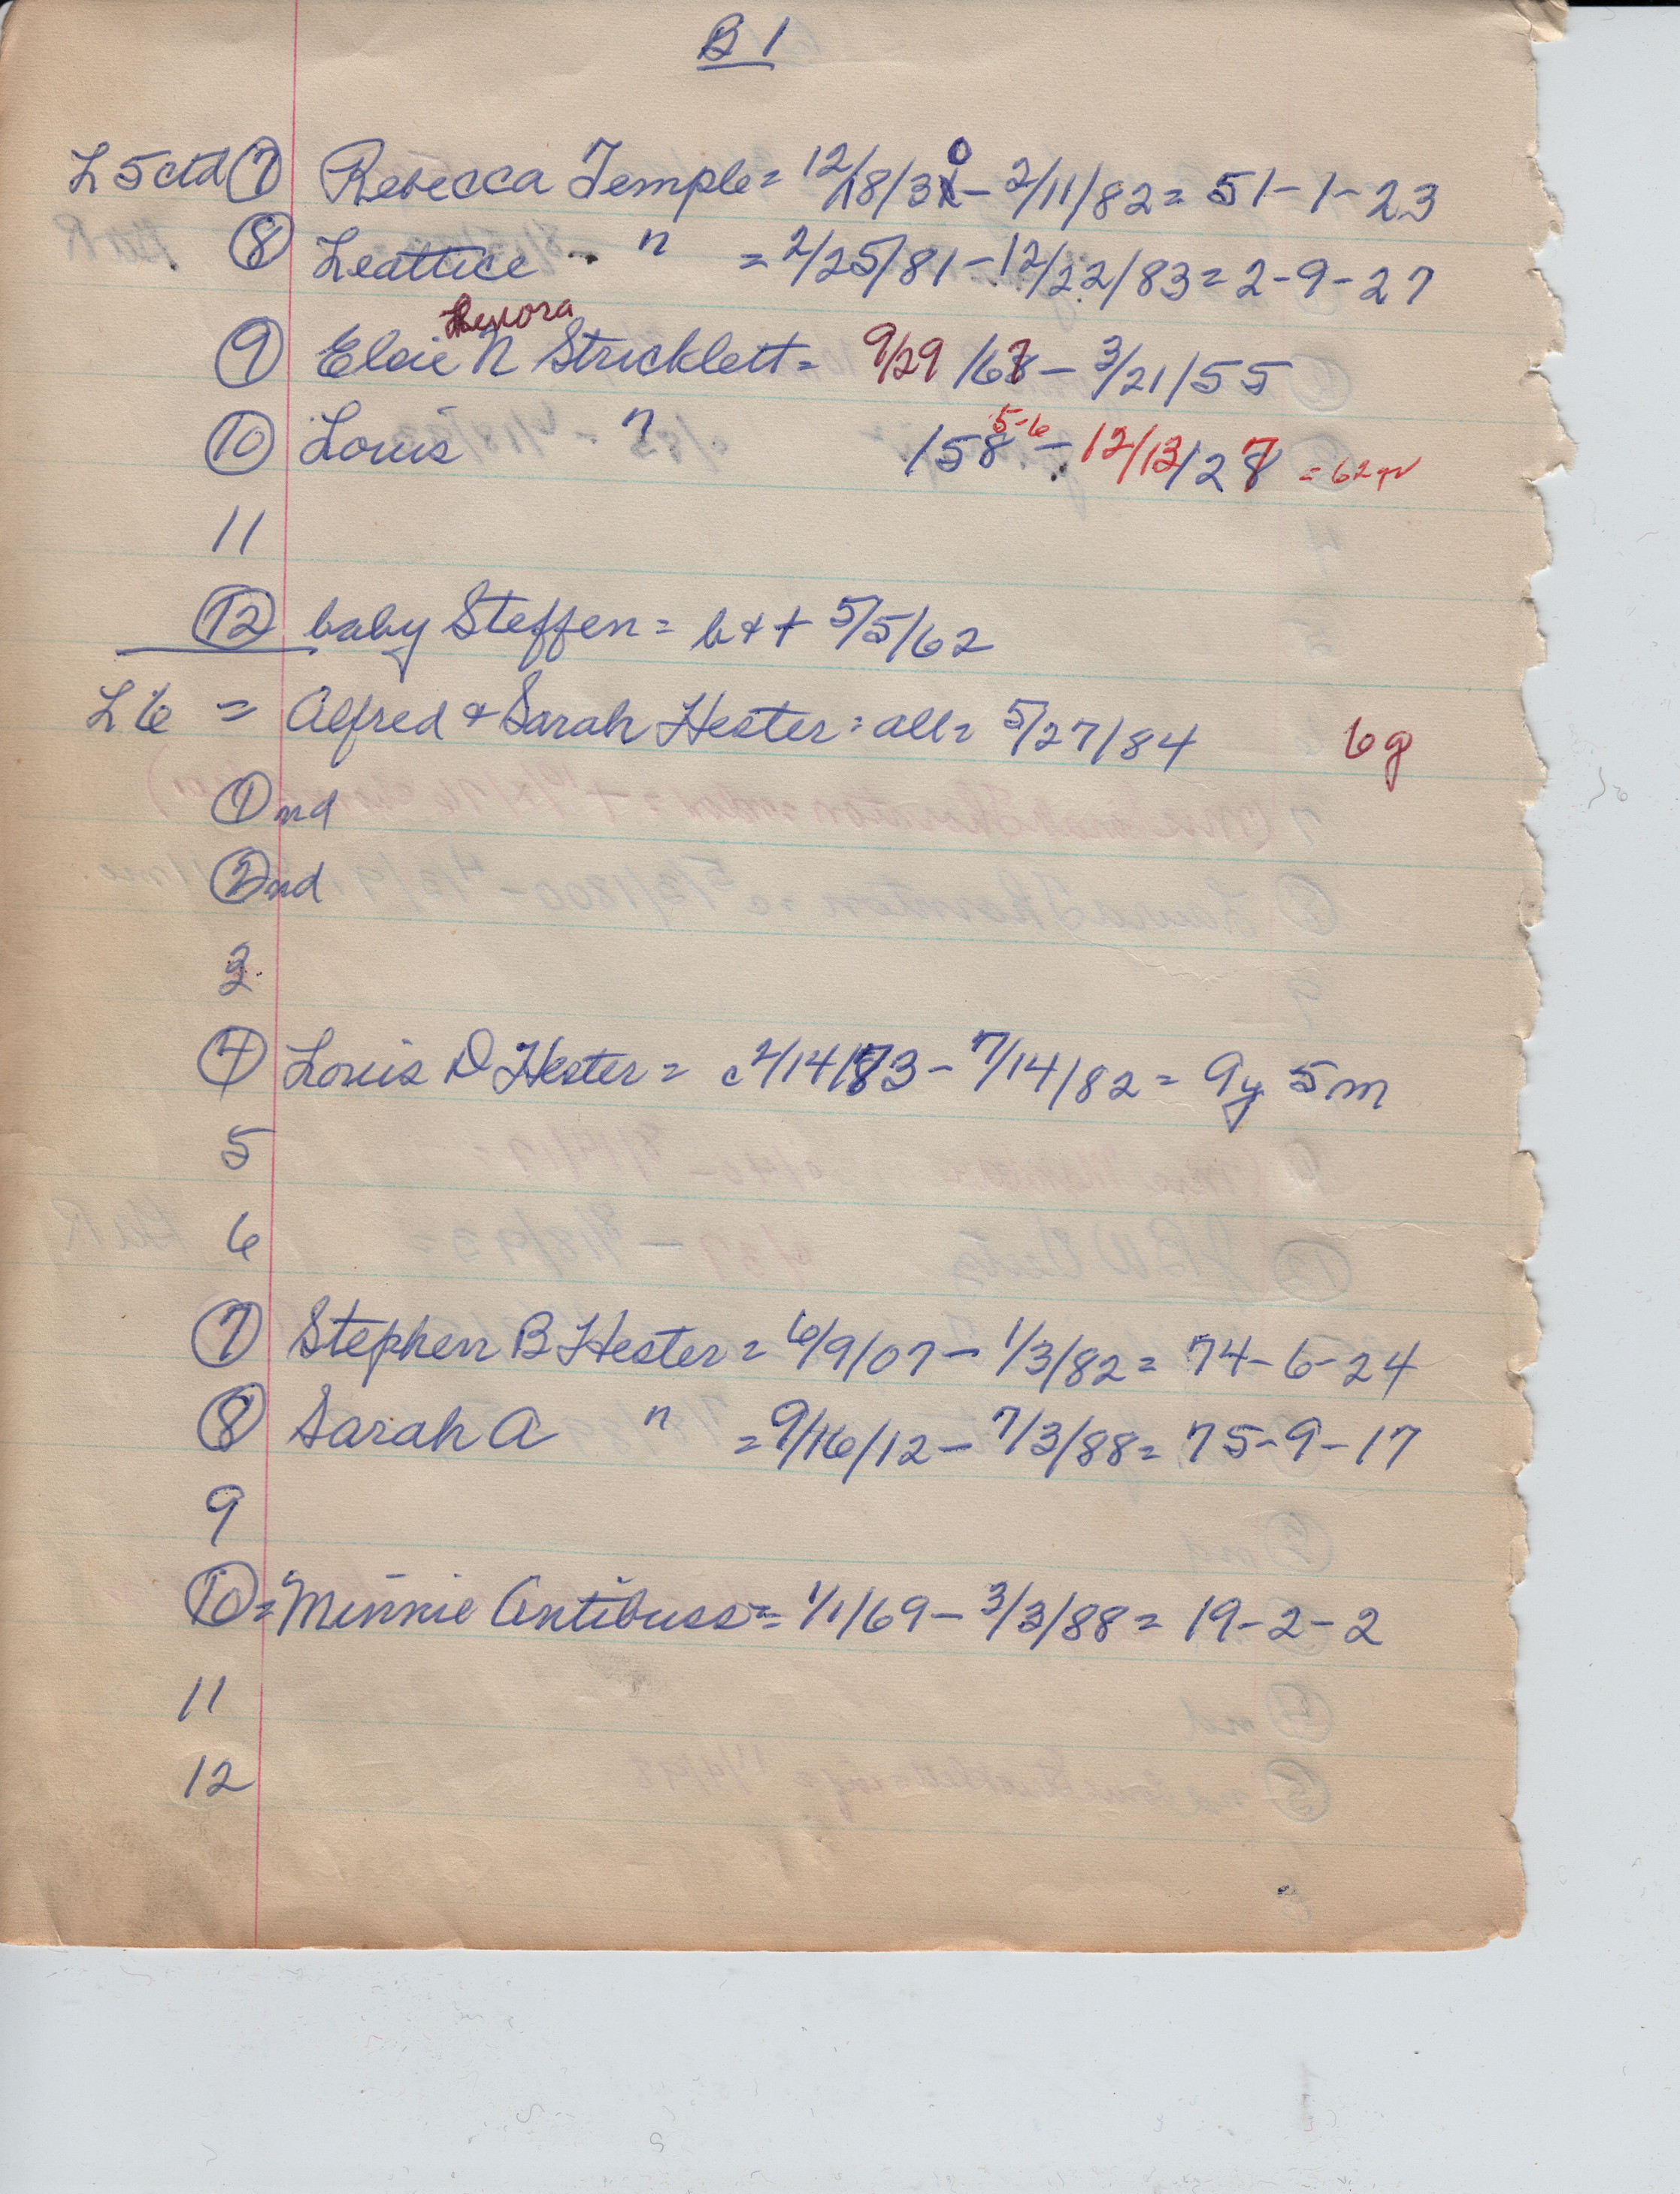 B 1
L 5 ctd 7 Rebecca Temple = 12/18/30 - 2/11/82 = 51-1-23
8 Leattice " = 2/25/81 - 12/22/83 = 2-9-27
Lenora
9 Elsie N Stricklett = 9/29/67 - 3/21/55
5-6
10 Louis " /58 - 12/12/27 = 62 gr
11
12 baby Steffen = b + † 5/5/62
L 6 = Alfred & Sarah Hester: all = 5/27/84 6g
1 nd
2 nd
3
4 Louis D Hester = c 2/14/73 - 7/14/82 = 9y 5m
5
6
7 Stephen B Hester = 6/9/07 - 1/3/82 = 74-6-24
8 Sarah A " = 9/16/12 - 7/3/88 = 75-9-17
9
10 = Minnie Antibuss = 1/1/69 - 3/3/88 = 19-2-2
11
12